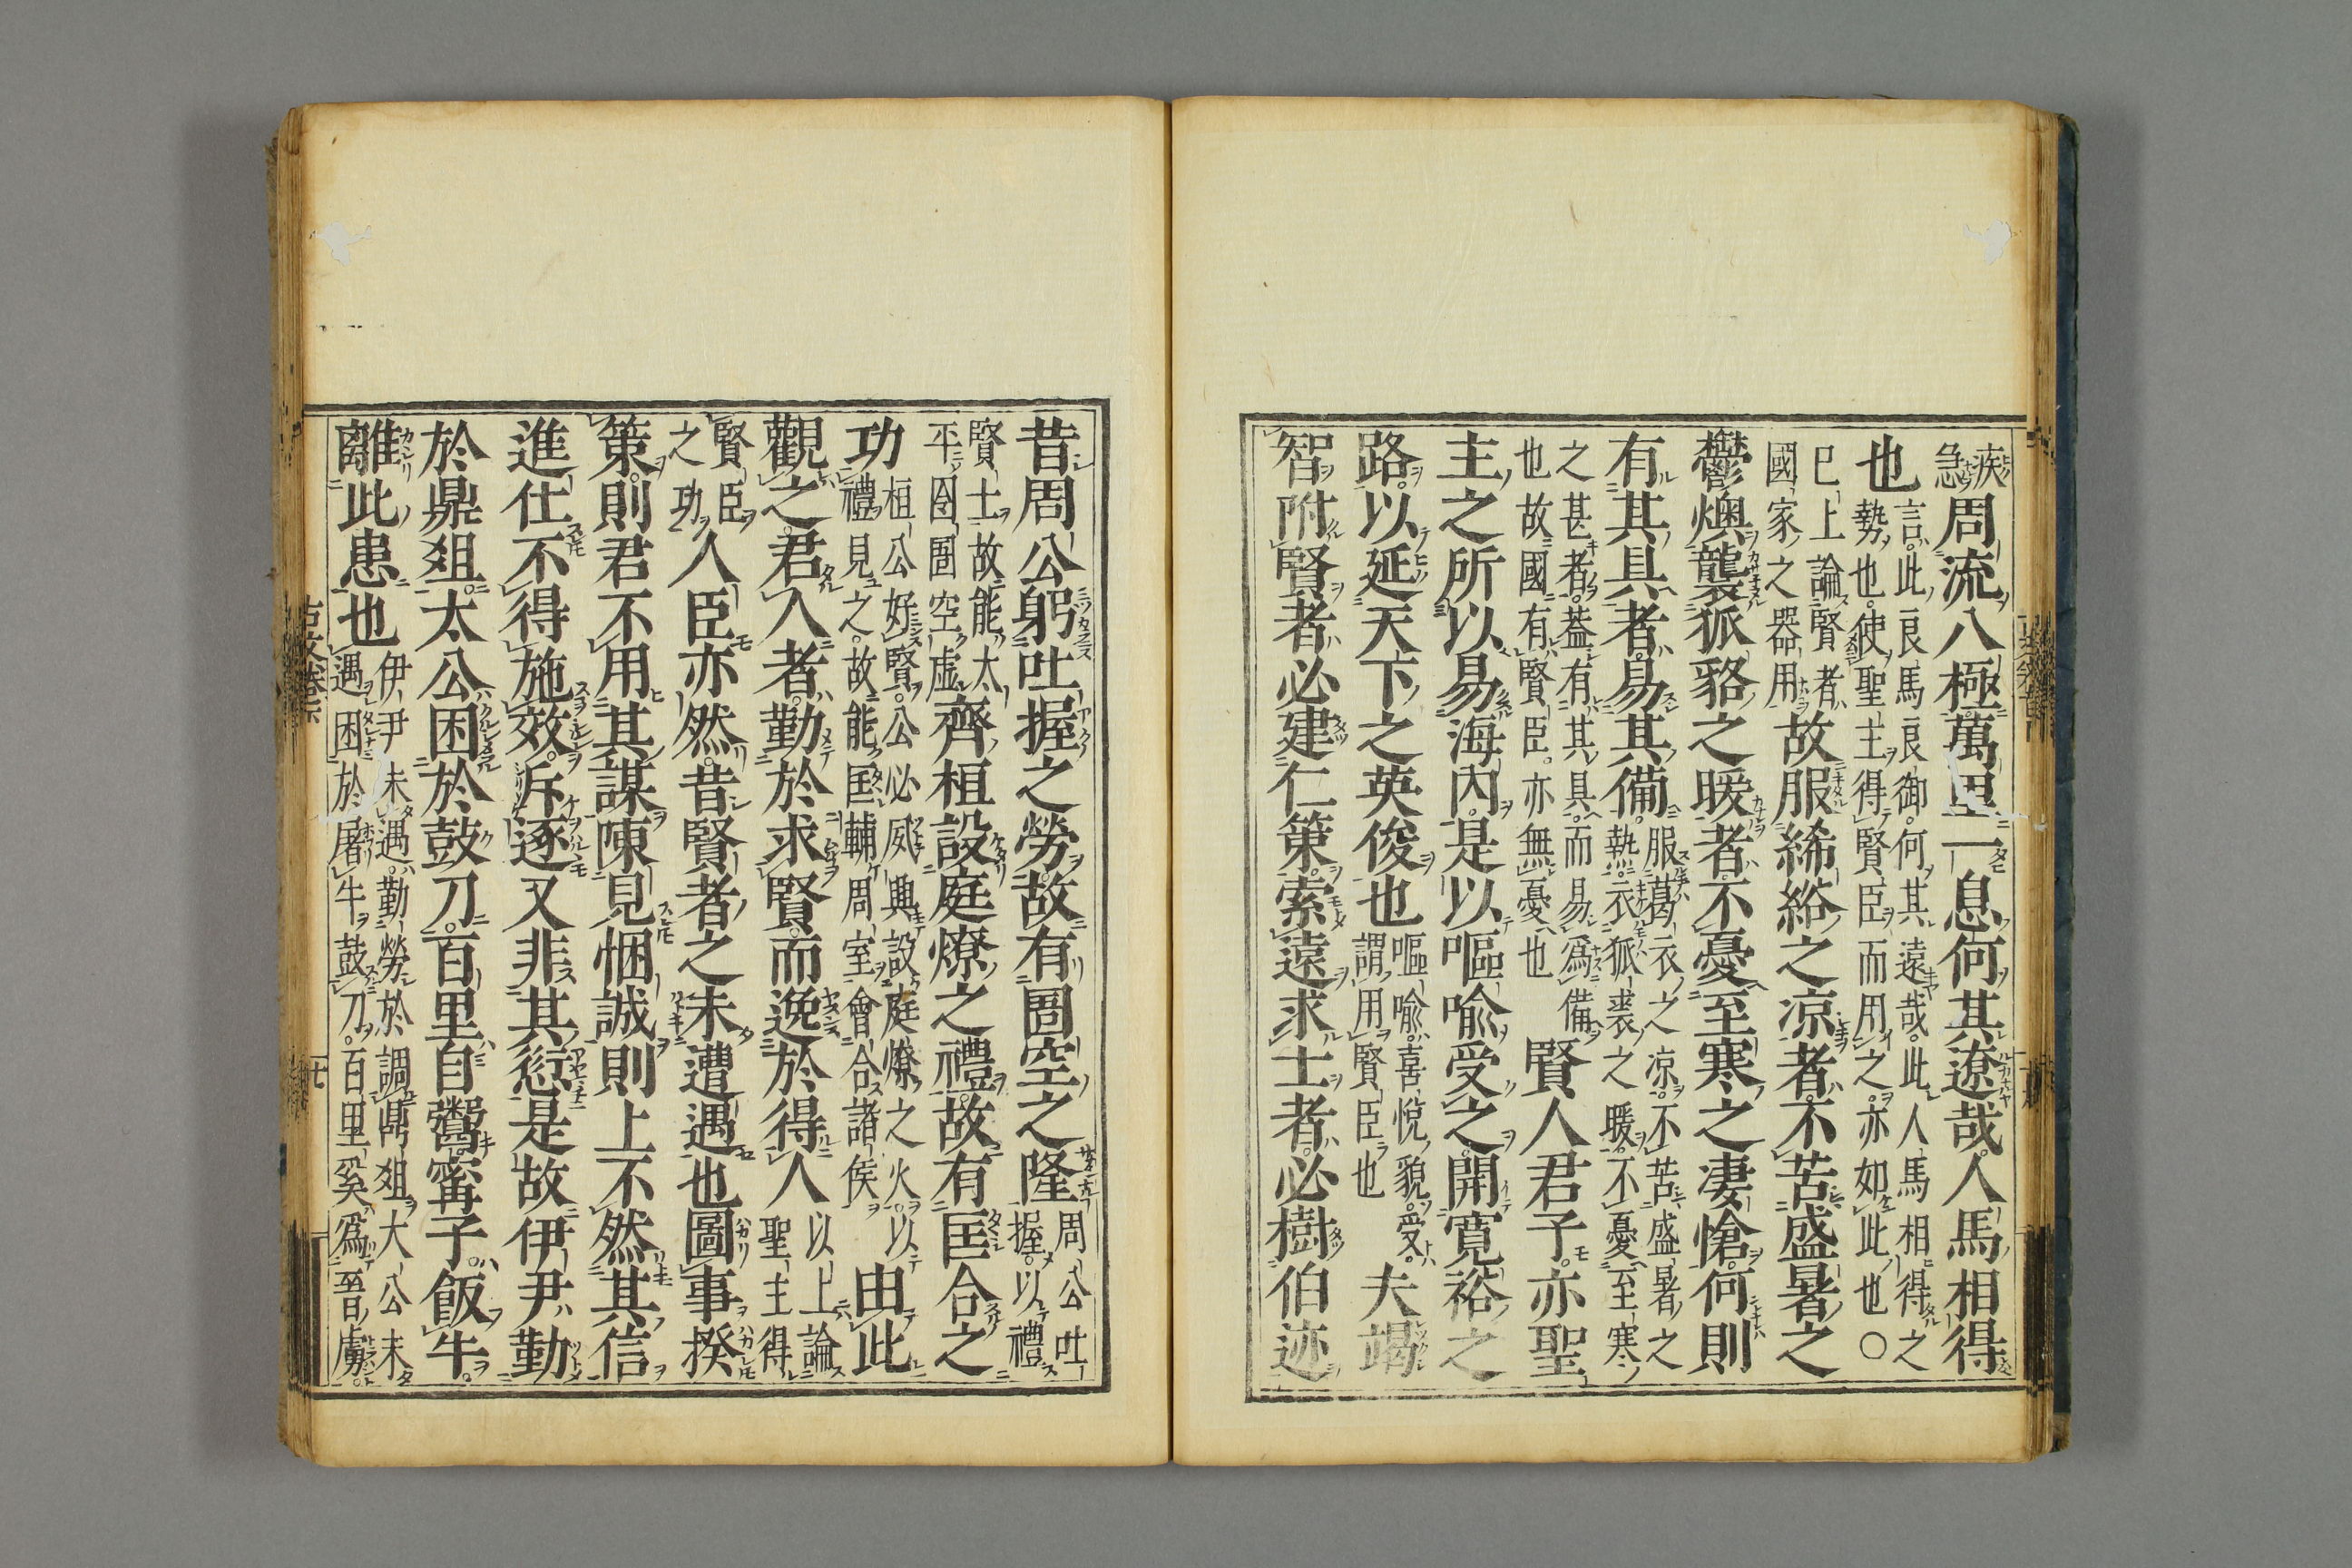 疾急周流八極萬里一息何其遼哉人馬相得
也言此良馬良御何其遠哉此人馬相得之勢也使聖主得賢臣而用之亦如此也〇
巳上論賢者國家之器用故服絺綌之凉者不苦盛暑之
鬱燠襲狐貉之暖者不憂至寒之凄愴何則
有其具者易其備服葛衣之凉不苦盛暑之熱衣狐裘之暖不憂至寒
之甚者葢有其具而易爲備也故國有賢臣亦無憂也賢人君子亦聖
主之所以易海內是以嘔喻受之開寬裕之
路以延天下之英俊也嘔喻喜悅貌受謂用賢臣也夫竭
智附賢者必建仁策索遠求士者必樹伯迹
昔周公躬吐握之勞故有圄空之隆周公吐握以禮
賢士故能太平囹圄空虛齊桓設庭燎之禮故有匡合之
功桓公好賢公必夙興設庭燎之火以禮見之故能匡輔周室會合諸侯由此
觀之君人者勤於求賢而逸於得人以上論聖主得
賢臣之功人臣亦然昔賢者之未遭遇也圖事揆
策則君不用其謀陳見悃誠則上不然其信
進仕不得施效斥逐又非其愆是故伊尹勤
於鼎爼太公困於鼓刀百里自鬻甯子飯牛
離此患也伊尹未遇勤勞於調鼎爼大公未遇困於屠牛鼓刀百里奚爲晉虜